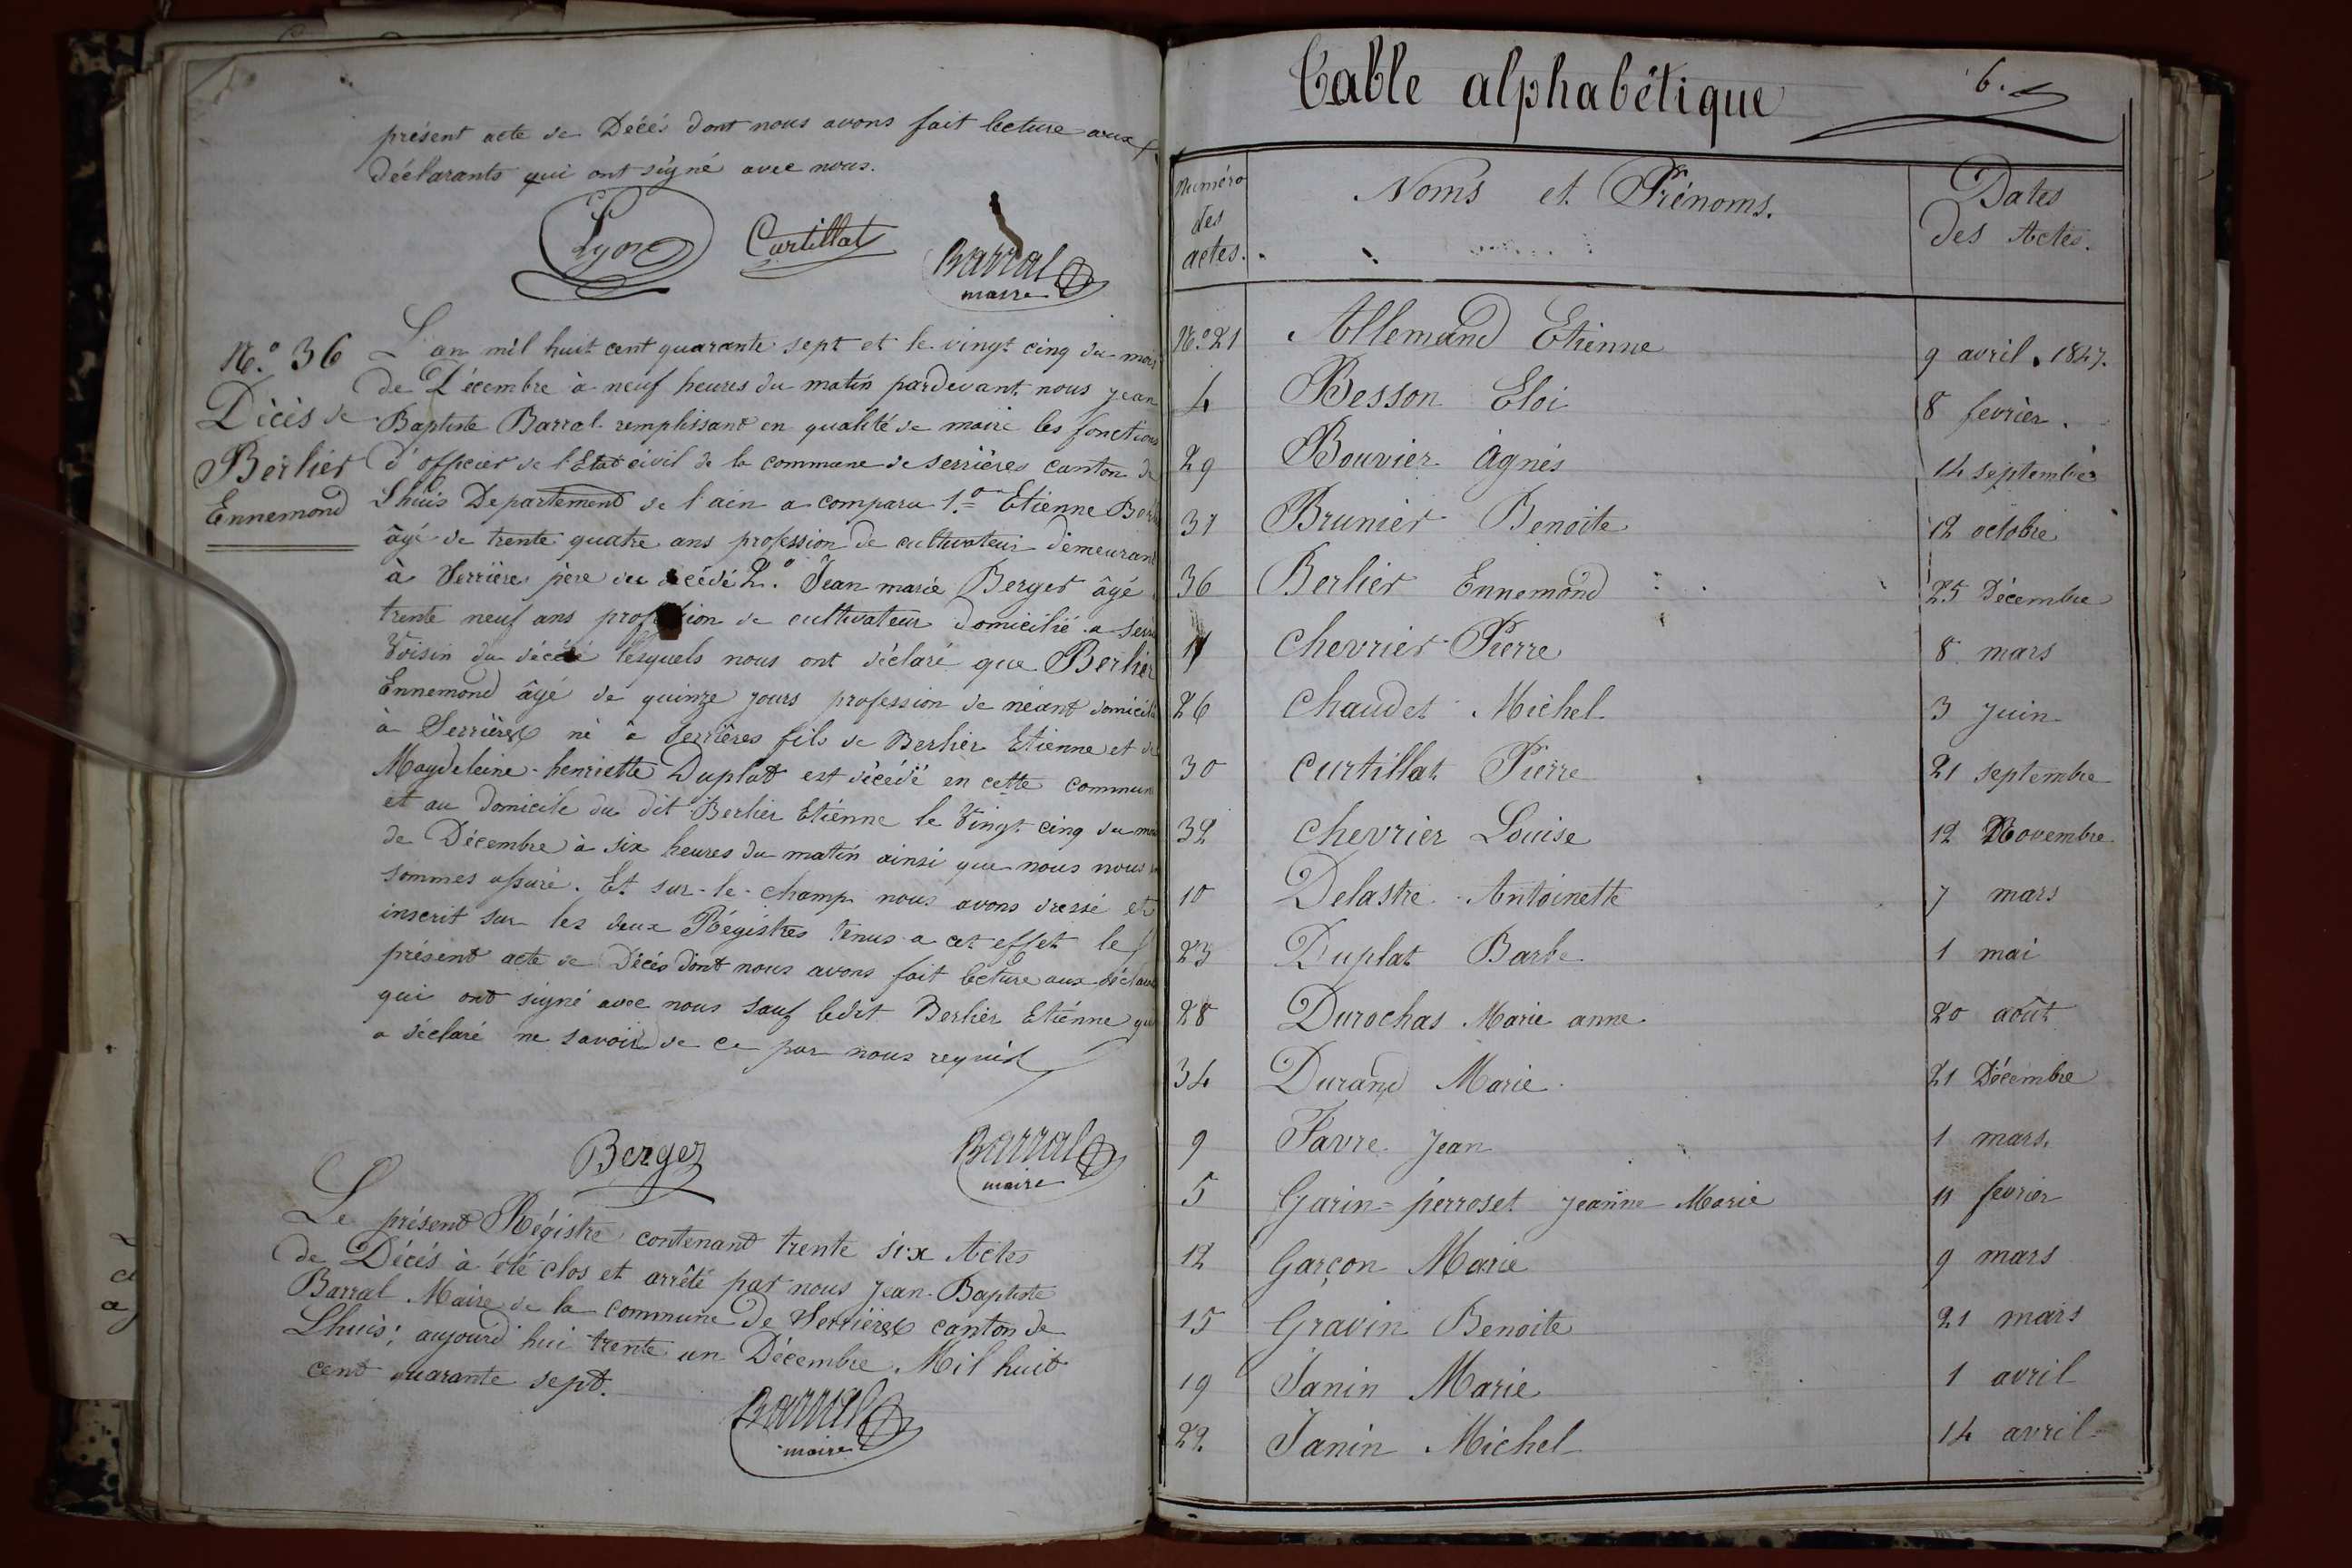 présent acte de Décés dont nous avons fait lecture aux
déclarants qui ont signé avec nous.
Lyon Curtillat Barral
maire
N.º 36
Décès de
Berlier
Ennemond
L'an mil huit cent quarante sept et le vingt cinq du mois
de Décembre à neuf heures du matin pardevant nous Jean
Baptiste Barral remplissant en qualité de maire les fonctions
d'officier de l'Etat civil de la commune de Serrières canton de
Lhuis Departement de l'ain a comparu 1.º Etienne Ber
âgé de trente quatre ans profession de cultivateur demeurant
à Serrière père du décédé 2.º Jean marie Berger âgé
trente neuf ans profession de cultivateur domicilié a Serr
Voisin du décédé lesquels nous ont déclaré que Berlier
Ennemond âgé de quinze jours profession de néant domicili
à Serrières né à Serrières fils de Berlier Etienne et de
Magdeleine-henriette Duplat est décédé en cette commun
et au domicile du dit Berlier Etiénne le Vingt cinq du mo
de Décembre à six heures du matin ainsi que nous nous
sommes assuré. Et sur-le-champ nous avons dressé et
inscrit sur les deux Régistres tenus a cet effet le
présent acte de Décés dont nous avons fait lecture aux déclar
qui ont signé avec nous sauf ledit Berlier Etiénne qu
a déclaré ne savoir de ce par nous requis
Berger Barral
maire
Le présent Régistre contenant trente six Actes
de Décés à été clos et arrêté par nous Jean-Baptiste
Barral Maire de la commune de Serrières canton de
Lhuis; aujourd'hui trente un Décembre Mil huit
cent quarante sept.
Barral
maire
Table alphabétique 6.
Numéro des actes. Noms et Prénoms. Dates des Actes.
N.º 21 Allemand Etienne 9 avril 1847.
4 Besson Eloi 8 fevrier.
29 Bouvier Agnés 14 septembre
31 Brunier Benoite 12 octobre
36 Berlier Ennemond 25 Décembre
11 Chevrier Pierre 8 mars
26 Chaudet Michel 3 Juin
30 Curtillat Pierre 21 septembre
32 Chevrier Louise 12 Novembre
10 Delastre Antoinette 7 mars
23 Duplat Barbe 1 mai
28 Durochas Marie anne 20 août
34 Durand Marie 21 Décembre
9 Favre Jean 1 mars.
5 Garin-perroset Jeanne Marie 11 fevrier
12 Garçon Marie 9 mars
15 Gravin Benoite 21 mars
19 Janin Marie 1 avril
22 Janin Michel 14 avril